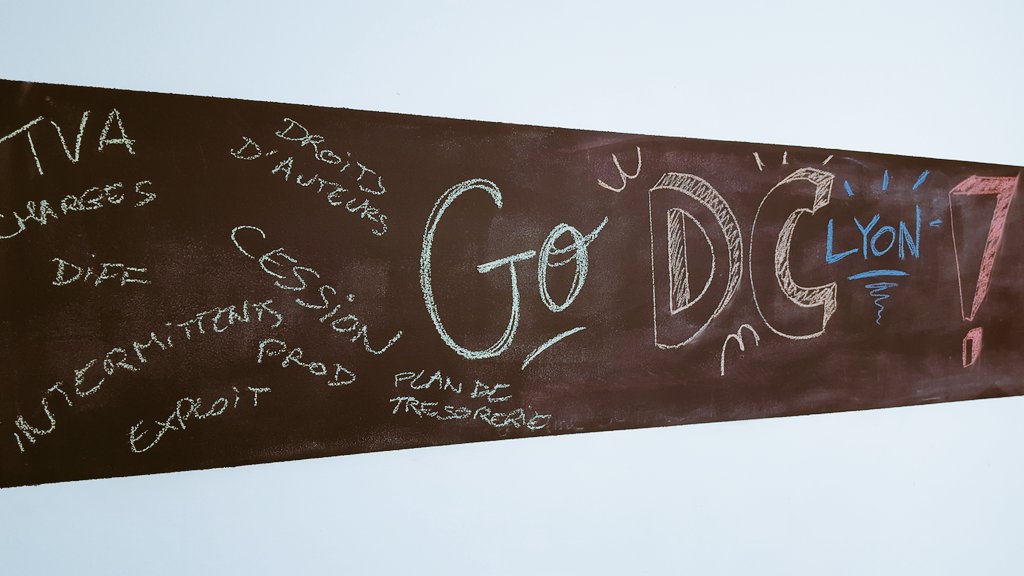 TVA
CHARGES
DIFE
INTERMITTENTS
EXPLOIT
DROITS
D'AUTEURS
CESSION
PROD
PLAN DE
TRESORERIE
GO DC LYON !